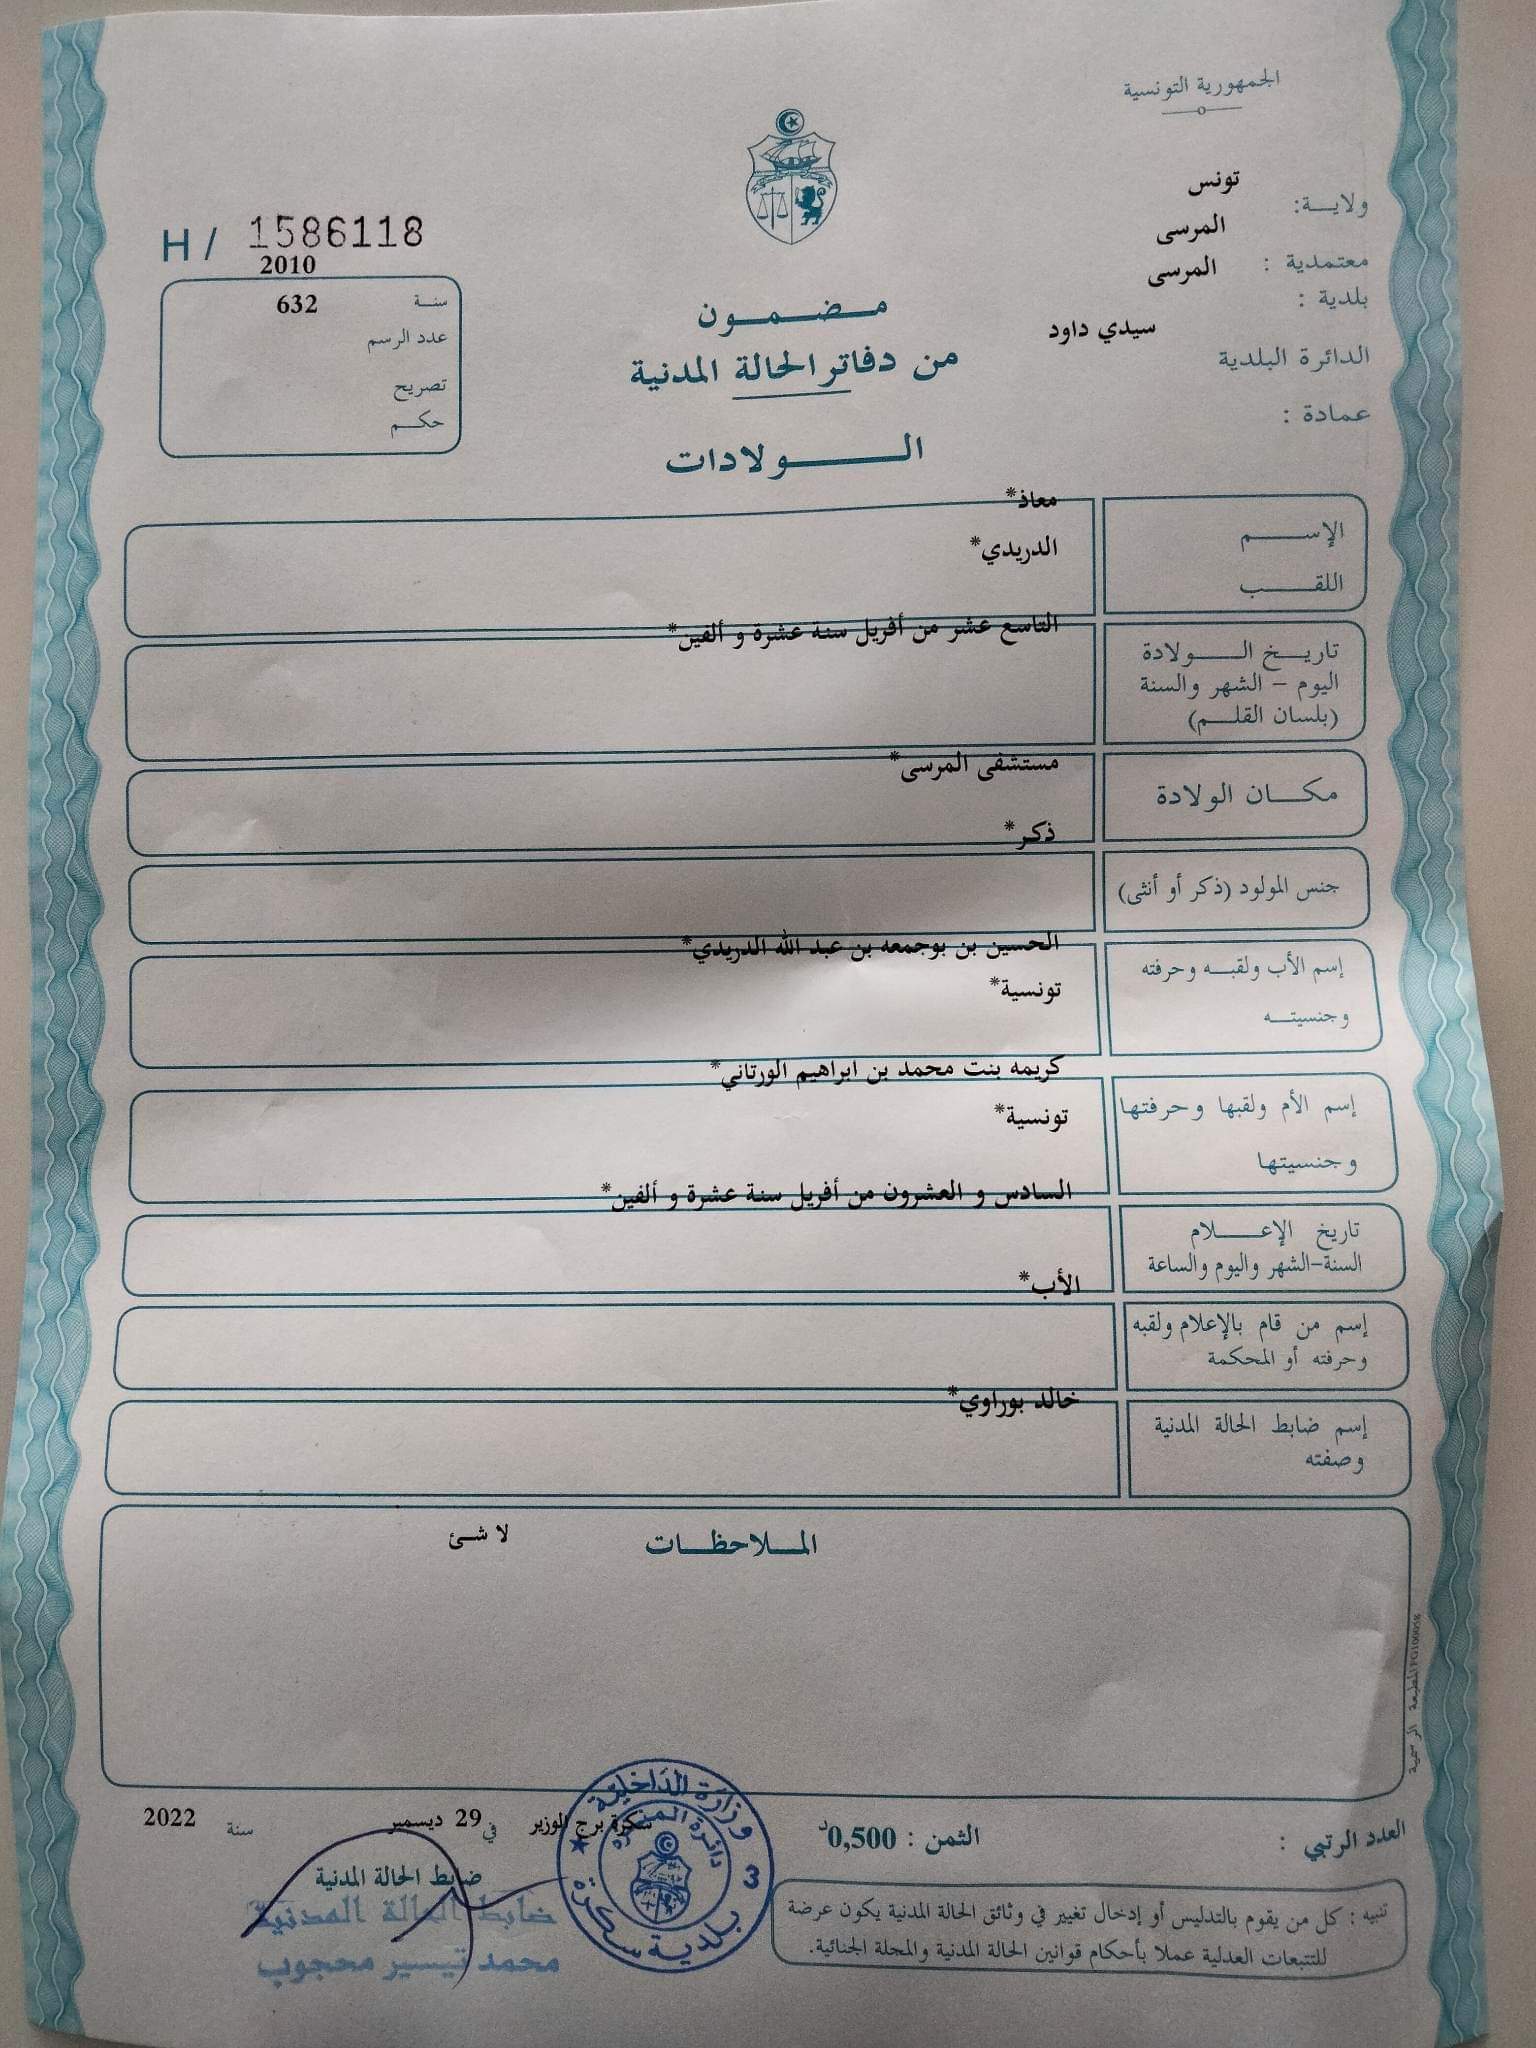 الجمهورية التونسية
ولاية: تونس
معتمدية : المرسى
بلدية : المرسى
الدائرة البلدية سيدي داود
عمادة :
H / 1586118
سنة 2010
عدد الرسم 632
تصريح
حكم
مضمون
من دفاتر الحالة المدنية
الولادات
الإسم معاذ*
اللقب الدريدي*
تاريخ الولادة
اليوم - الشهر والسنة
(بلسان القلم)
التاسع عشر من أفريل سنة عشرة و ألفين*
مكان الولادة
مستشفى المرسى*
جنس المولود (ذكر أو أنثى)
ذكر*
إسم الأب ولقبه وحرفته
وجنسيته
الحسين بن بوجمعه بن عبد الله الدريدي*
تونسية*
إسم الأم ولقبها وحرفتها
وجنسيتها
كريمه بنت محمد بن ابراهيم الورتاني*
تونسية*
تاريخ الإعلام
السنة-الشهر واليوم والساعة
السادس و العشرون من أفريل سنة عشرة و ألفين*
إسم من قام بالإعلام ولقبه
وحرفته أو المحكمة
الأب*
إسم ضابط الحالة المدنية
وصفته
خالد بوراوي*
الملاحظات
لا شئ
المطبعة الرسمية PG100058
العدد الرتبي :
الثمن : 0,500د
سكرة برج الوزير في 29 ديسمبر سنة 2022
ضابط الحالة المدنية
ضابط الحالة المدنية
محمد تيسير محجوب
وزارة الداخلية
بلدية سكرة
3
تنبيه : كل من يقوم بالتدليس أو إدخال تغيير في وثائق الحالة المدنية يكون عرضة
للتتبعات العدلية عملا بأحكام قوانين الحالة المدنية والمجلة الجنائية.